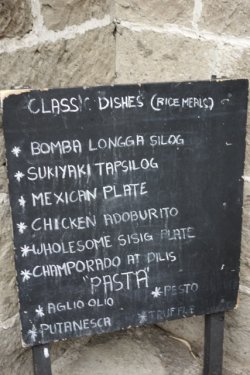 CLASSIC DISHES (RICE MEALS)
* BOMBA LONGGA SILOG
* SUKIYAKI TAPSILOG
* MEXICAN PLATE
* CHICKEN ADOBURITO
* WHOLESOME SISIG PLATE
* CHAMPORADO AT DILIS
"PASTA"
* AGLIO OLIO * PESTO
* PUTANESCA * TRUFFLE